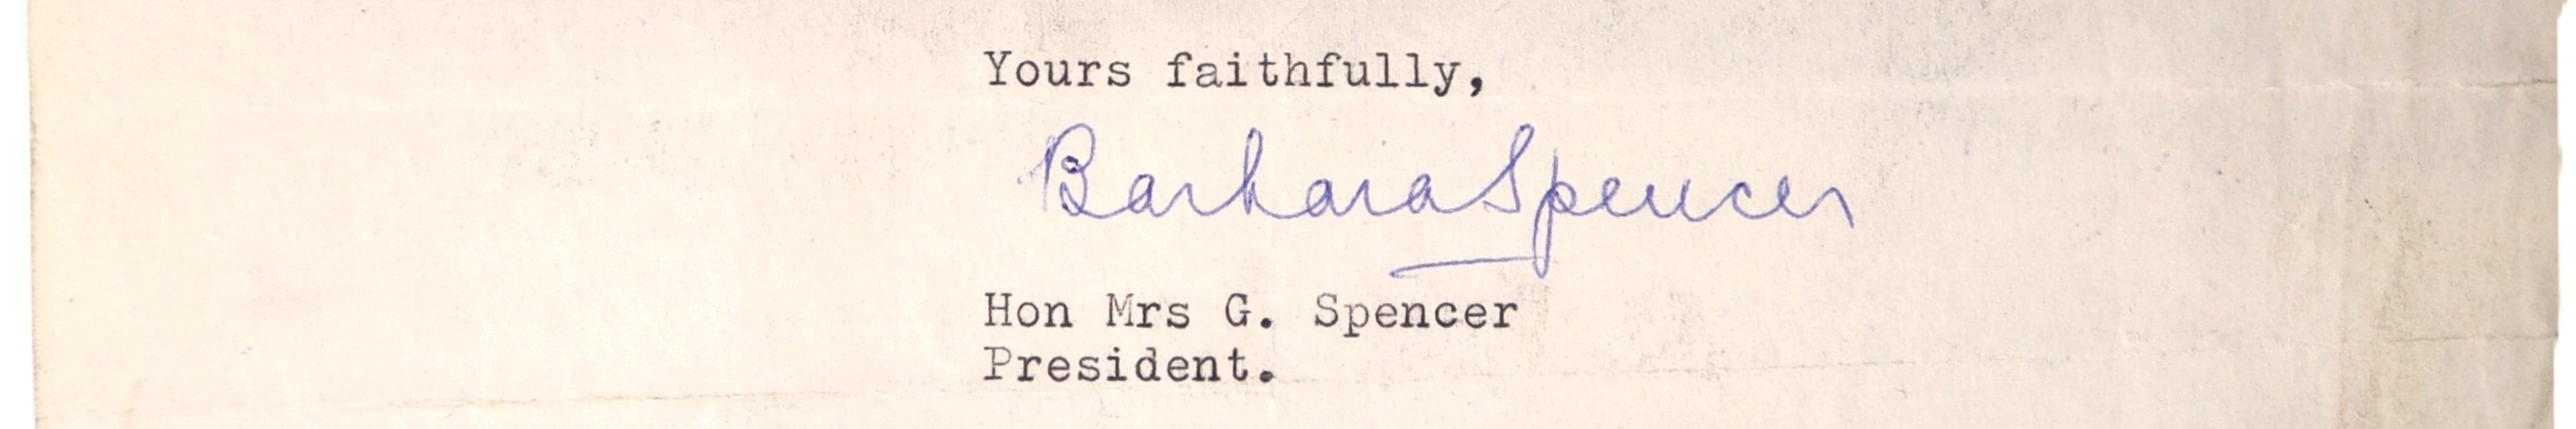 Yours faithfully,
Barbara Spencer
Hon Mrs G. Spencer
President.